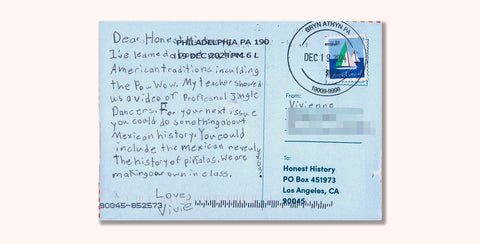 Dear Honest
PHILADELPHIA PA 190
19 DEC 2024 PM 6 L
I've learned
American traditions inculding
the Pow Wow. My teacher showed
us a video of Proffional Jingle
Dancers. For your next issue
you could do something about
Mexican history. You could
include the mexican
the history of piñatas. We are
making our own in class.
Love,
Vivie
90045-852573
BRYN ATHYN PA
DEC 19
19009-9998
From:
Vivienne
To:
Honest History
PO Box 451973
Los Angeles, CA
90045